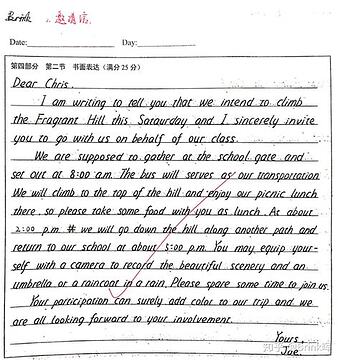 Brink 邀请信
Date: Day:
第四部分 第二节 书面表达（满分25分）
Dear Chris,
I am writing to tell you that we intend to climb
the Fragrant Hill this Sataurday and I sincerely invite
you to go with us on behalf of our class.
We are supposed to gather at the school gate and
set out at 8:00 a.m. The bus will serves as our transportation.
We will climb to the top of the hill and enjoy our picnic lunch
there, so please take some food with you as lunch. At about
2:00 p.m. we will go down the hill along another path and
return to our school at about 5:00 p.m. You may equip your-
self with a camera to record the beautiful scenery and an
umbrella or a raincoat in a rain. Please spare some time to join us.
Your participation can surely add color to our trip and we
are all looking forward to your involvement.
Yours,
Joe
知乎 @Brink